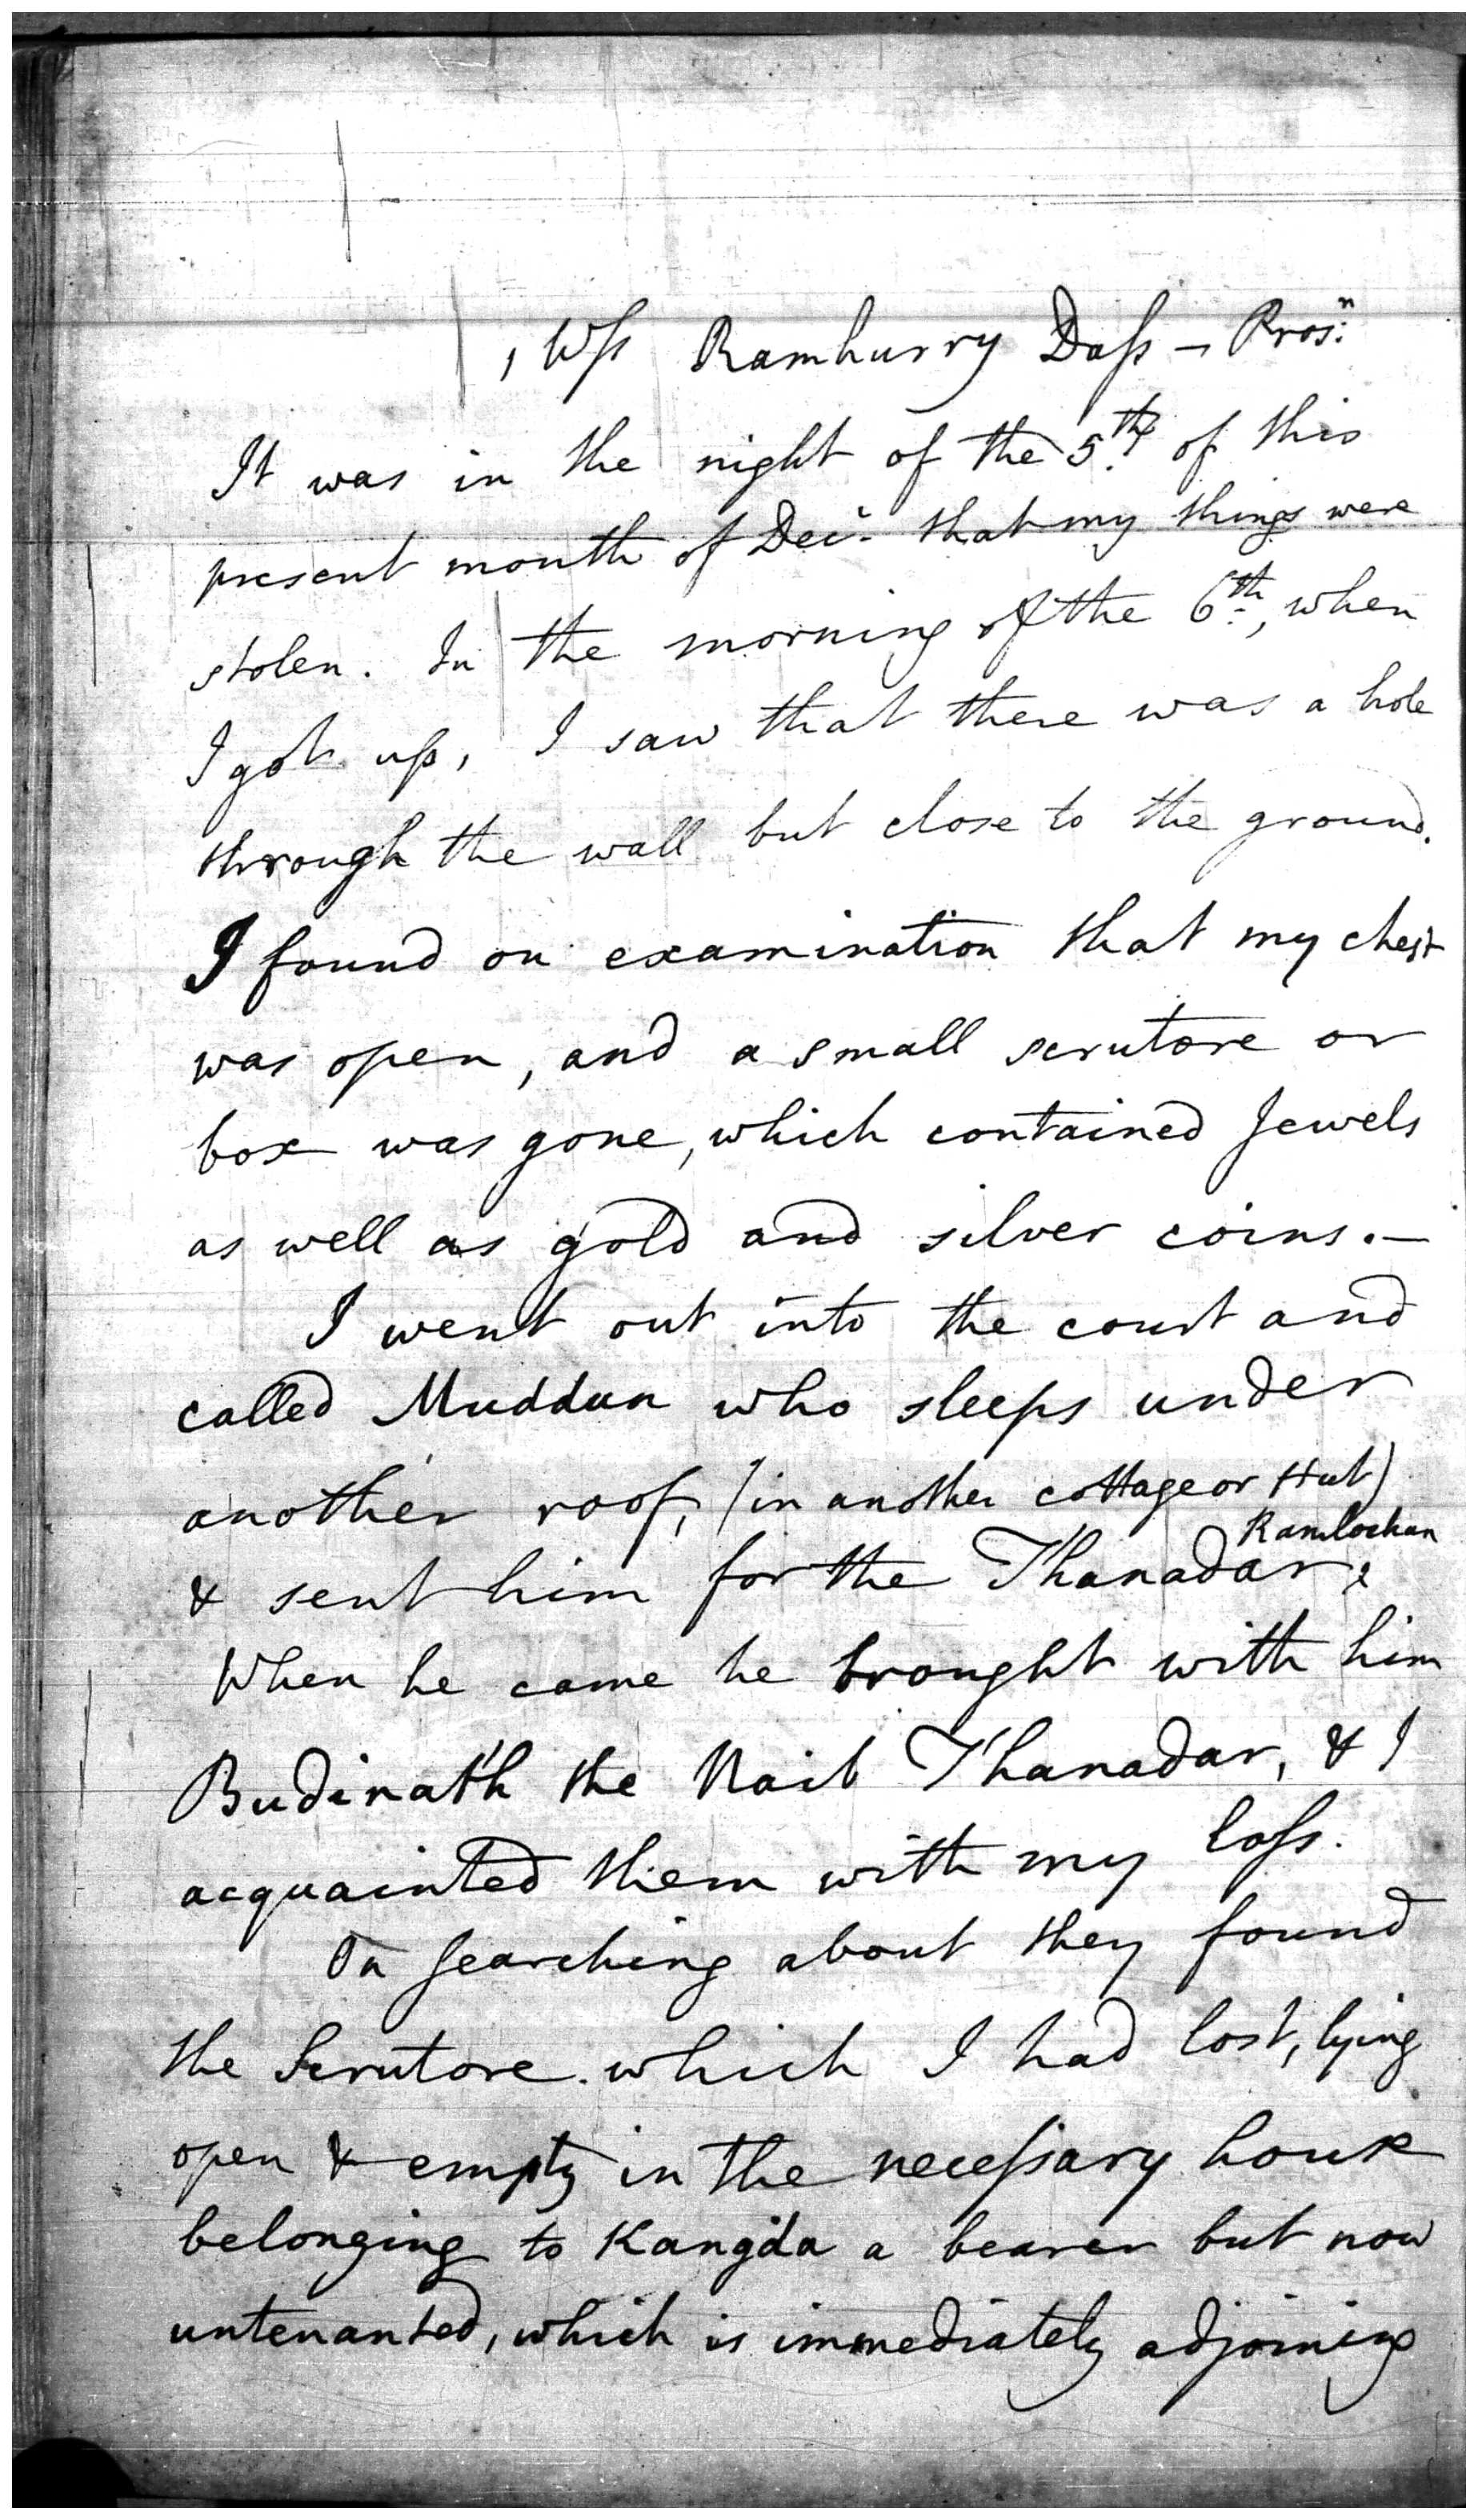 1 Wss Ramhurry Dass – Pros.n
It was in the night of the 5.th of this
present month of Decr. that my things were
stolen. In the morning of the 6th, when
I got up, I saw that there was a hole
through the wall but close to the ground.
I found on examination that my chest
was open, and a small scrutore or
box was gone, which contained Jewels
as well as gold and silver coins. –
I went out into the court and
called Muddun who sleeps under
another roof, (in another cottage or Hut)
Ramlochun
& sent him for the Thanadar;
When he came he brought with him
Budinath the Naib Thanadar, & I
acquainted them with my loss.
On searching about they found
the Scrutore which I had lost, lying
open & empty in the necessary house
belonging to Kangda a bearer but now
untenanted, which is immediately adjoining